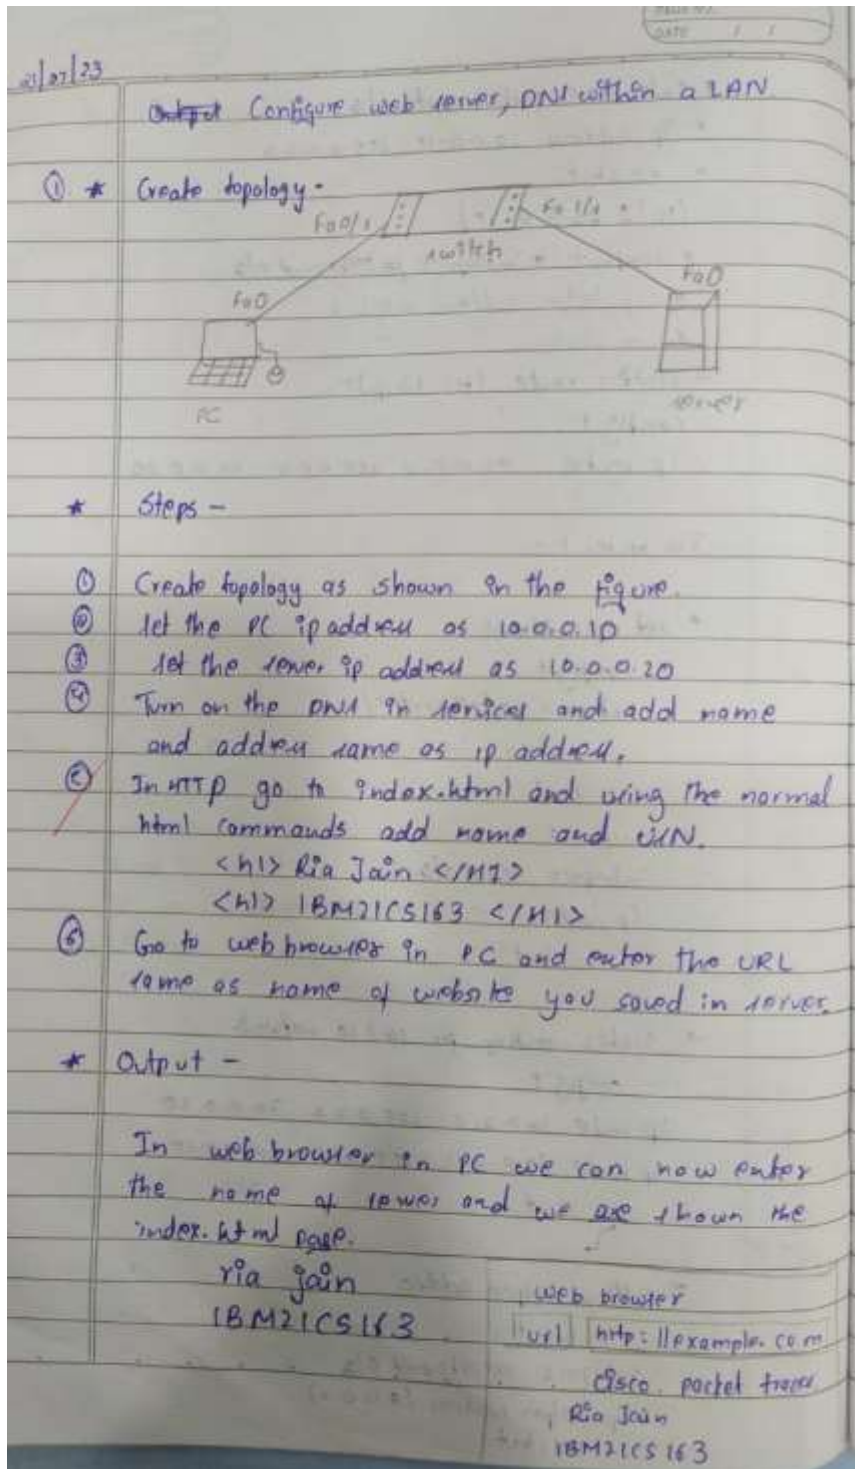 DATE / /
21/07/23
Output Configure web server, DNS within a LAN
① * Create topology -
Fa0/1 Fa 1/1
switch
Fa0 Fa0
PC server
* Steps -
① Create topology as shown in the figure.
② set the PC ip address as 10.0.0.10
③ set the server ip address as 10.0.0.20
④ Turn on the DNS in services and add name
and address same as ip address.
⑤ In HTTP go to index.html and using the normal
html commands add name and USN.
<h1> Ria Jain </H1>
<h1> 1BM21CS163 </H1>
⑥ Go to web browser in PC and enter the URL
same as name of website you saved in server.
* Output -
In web browser in PC we can now enter
the name of server and we are shown the
index.html page.
ria jain
1BM21CS163
web browser
url http://example.com
cisco packet tracer
Ria Jain
1BM21CS163